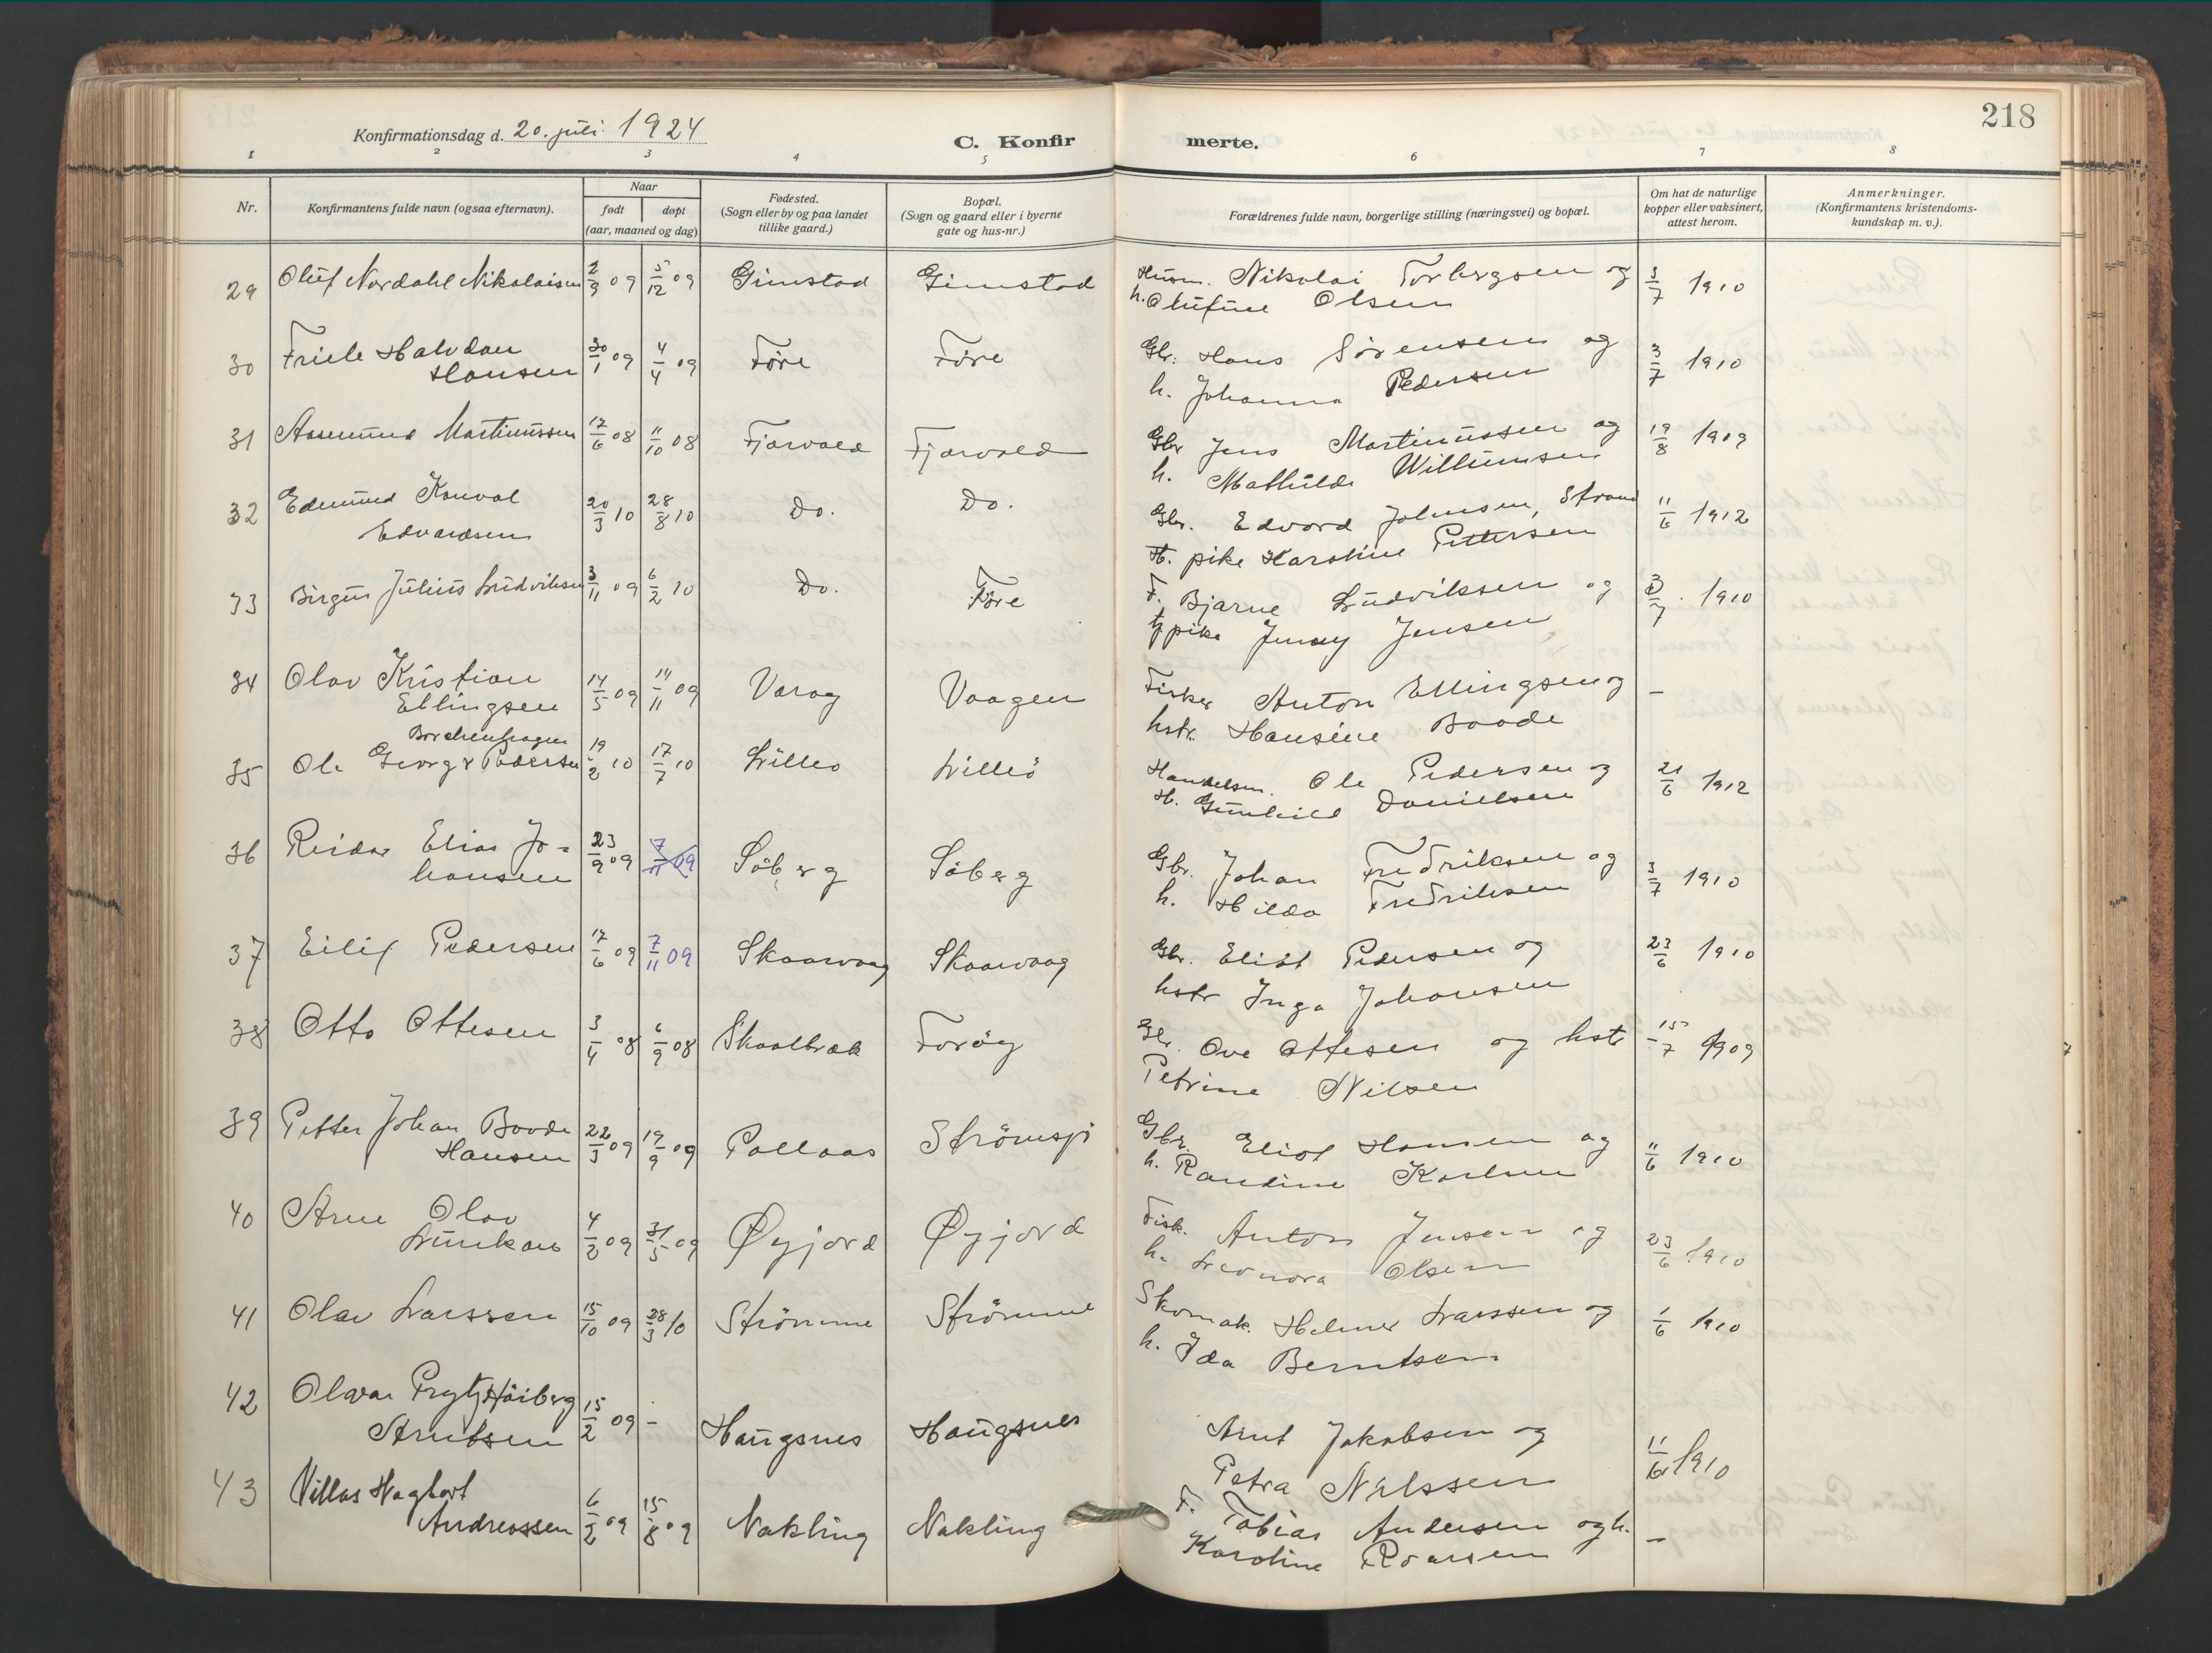 218
Konfirmationsdag d. 20. juli 1924
C. Konfirmerte.
1 2 3 4 5 6 7 8
Nr.
Konfirmantens fulde navn (ogsaa efternavn).
Naar
født døpt
(aar, maaned og dag)
Fødested.
(Sogn eller by og paa landet
tillike gaard.)
Bopæl.
(Sogn og gaard eller i byerne
gate og hus-nr.)
Forældrenes fulde navn, borgerlige stilling (næringsvei) og bopæl.
Om hat de naturlige
kopper eller vaksinert,
attest herom.
Anmerkninger.
(Konfirmantens kristendoms-
kundskap m. v.).
29 Oluf Nordahl Nikolaisen 2/9 09 5/12 09 Gimstad Gimstad Husm. Nikolai Torbergsen og 3/7 1910
h. Olufine Olsen
30 Friele Halvdan 30/1 09 4/4 09 Føre Føre Gbr. Hans Sørensen og 3/7 1910
Hansen h. Johanna Pedersen
31 Aasmund Martinussen 17/6 08 11/10 08 Fjærvold Fjærvold Gbr Jens Martinussen og 19/8 1909
h. Mathilde Willumsen
32 Edmund Konval 20/3 10 28/8 10 Do. Do. Gbr. Edvard Johnsen, Strand 11/6 1912
Edvardsen H. pike Karoline Pettersen
33 Birger Julius Ludviksen 3/11 09 6/2 10 Do. Føre F. Bjarne Ludvikssen og 3/7 1910
tj pike Jenny Jensen
34 Olav Kristian 14/5 09 14/11 09 Varøg Vaagen Fisker Anton Ellingsen og –
Ellingsen hstr. Hansine Baade
Borchenhagen
35 Ole Georg Pedersen 19/2 10 17/7 10 Lilleø Lilleö Handelsm. Ole Pedersen og 21/6 1912
H. Gunhild Danielsen
36 Reidar Elias Jo= 23/9 09 7/11 09 Söberg Söberg Gbr. Johan Fredriksen og 3/7 1910
hansen h. Hilda Fredriksen
37 Eilif Pedersen 17/6 09 7/11 09 Skaarvaag Skaarvaag Gbr. Eliot Pedersen og 23/6 1910
hstr Inga Johansen
38 Otto Ottesen 3/4 08 6/9 08 Skaalbræk Forøy Gbr. Ove Ottesen og hstr 15/7 1909
Petrine Nilsen
39 Petter Johan Baade 22/3 09 19/9 09 Pollaas Strømsjø Gbr. Eliot Hansen og 11/6 1910
Hansen h. Randine Karlsen
40 Arne Olav 4/2 09 31/5 09 Øyjord Øyjord Fisk. Anton Jensen og 23/6 1910
Lunkan h. Leonora Olsen
41 Olav Larssen 15/10 09 28/3 10 Strömme Strömme Skomak. Helmer Larssen og 1/6 1910
h. Ida Berntsen
42 Olavar Prytz Høiberg 15/2 09 – Haugsnes Haugsnes Arnt Jakobsen og 11/6 1910
Arntsen Petra Nilssen
43 Villas Hagbart 6/2 09 15/8 09 Nakling Nakling F. Tobias Andersen og h. –
Andreassen Karoline Roarsen